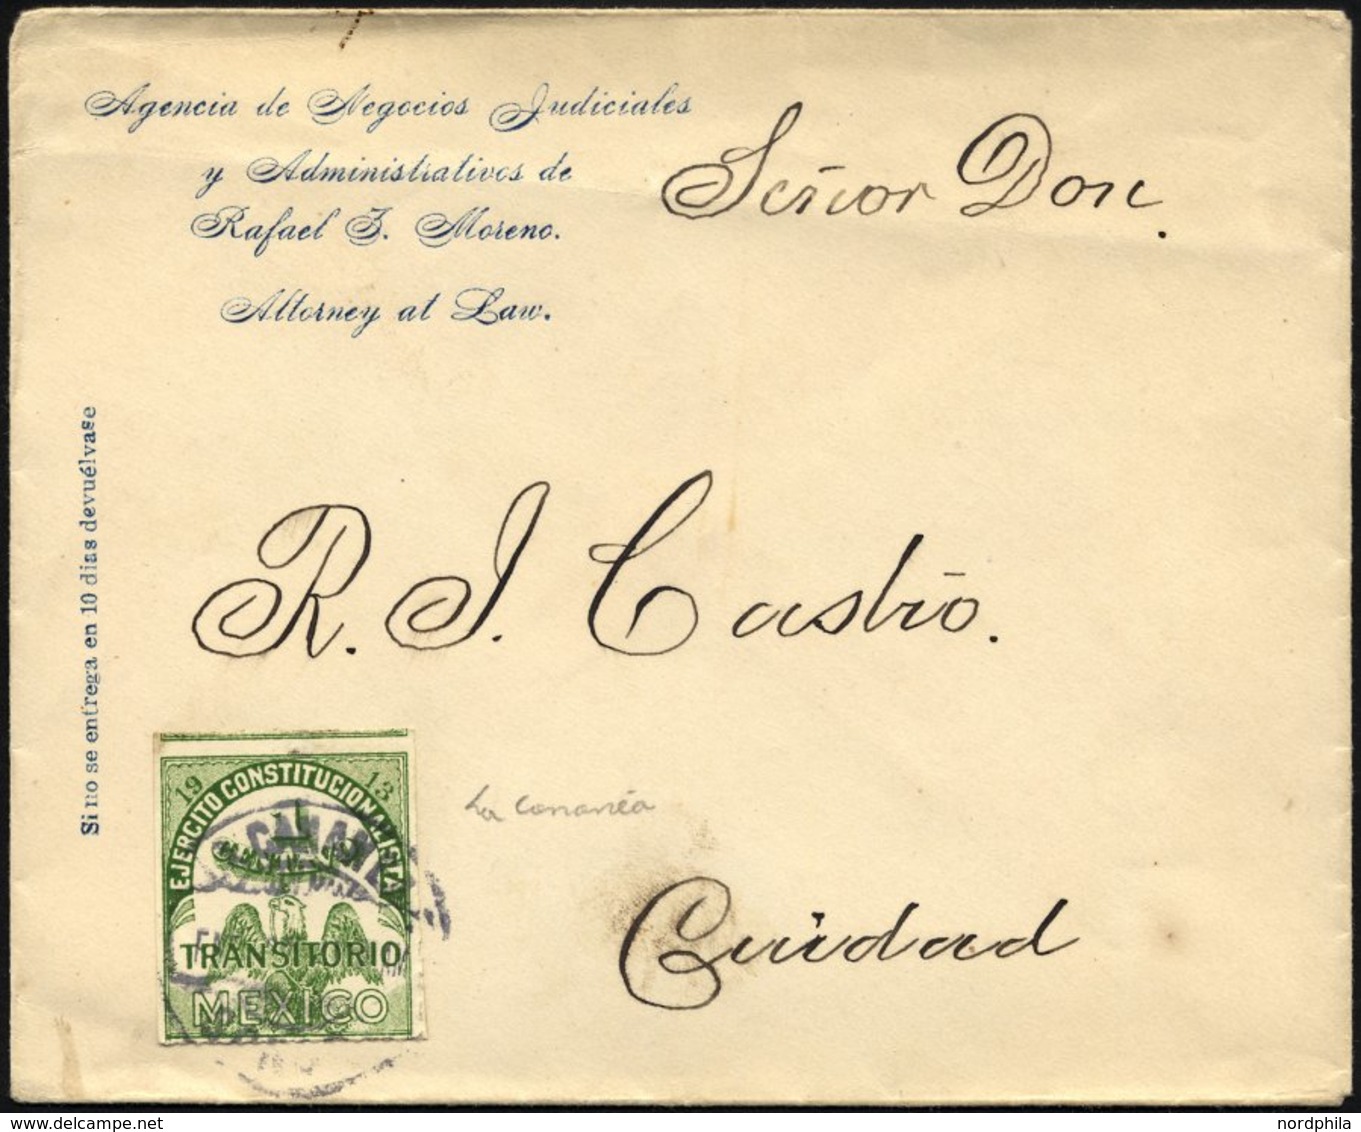 Agencia de Negocios Judiciales
y Administrativos de
Rafael J. Moreno.
Attorney at Law.
Señor Don.
Si no se entrega en 10 dias devuélvase
R. J. Castro.
19 13
EJERCITO CONSTITUCIONALISTA
1
CENTAVO
CANANEA
TRANSITORIO
MEXICO
La Cananéa
Cuidad
nordphila